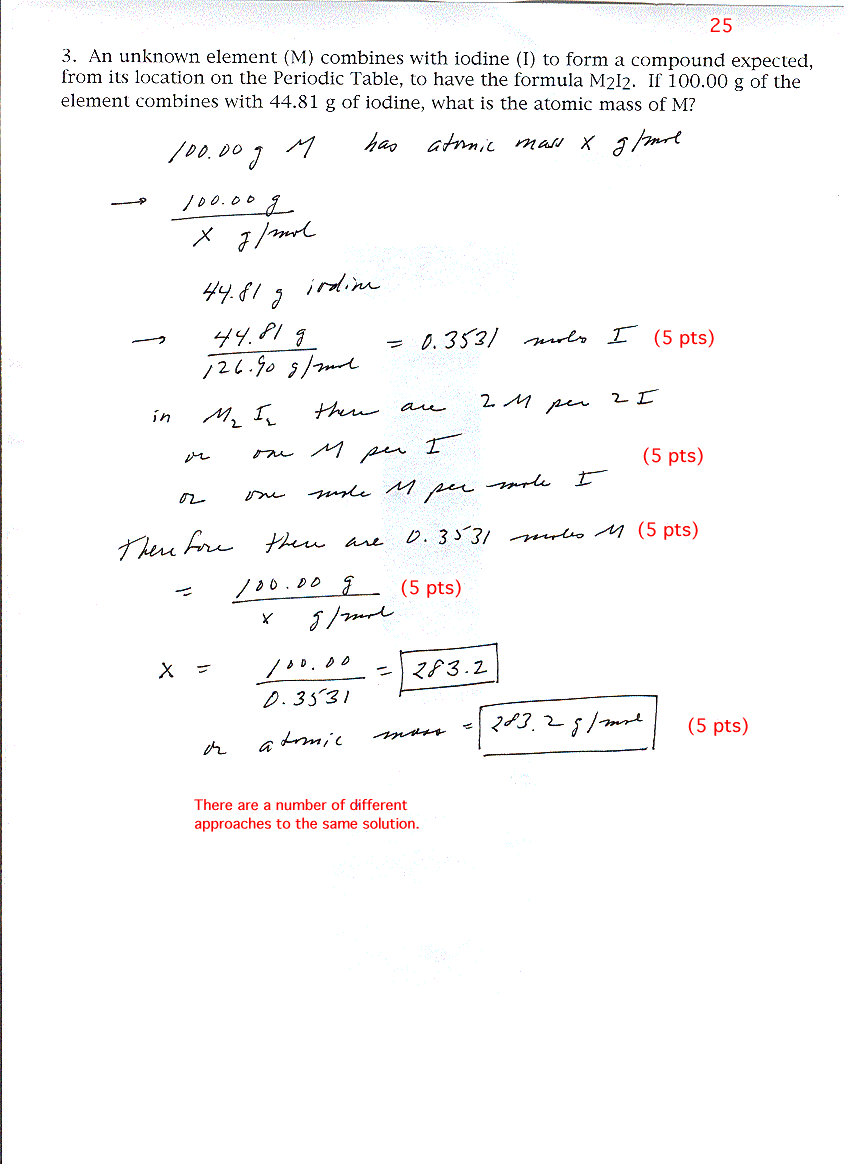 25
3. An unknown element (M) combines with iodine (I) to form a compound expected,
from its location on the Periodic Table, to have the formula M2I2. If 100.00 g of the
element combines with 44.81 g of iodine, what is the atomic mass of M?
100.00 g M has atomic mass x g/mol
→ 100.00 g
x g/mol
44.81 g iodine
→ 44.81 g = 0.3531 moles I (5 pts)
126.90 g/mol
in M2 I2 there are 2 M per 2 I
or one M per I (5 pts)
or one mole M per mole I
Therefore there are 0.3531 moles M (5 pts)
= 100.00 g (5 pts)
x g/mol
x = 100.00 = 283.2
0.3531
or atomic mass = 283.2 g/mol (5 pts)
There are a number of different
approaches to the same solution.